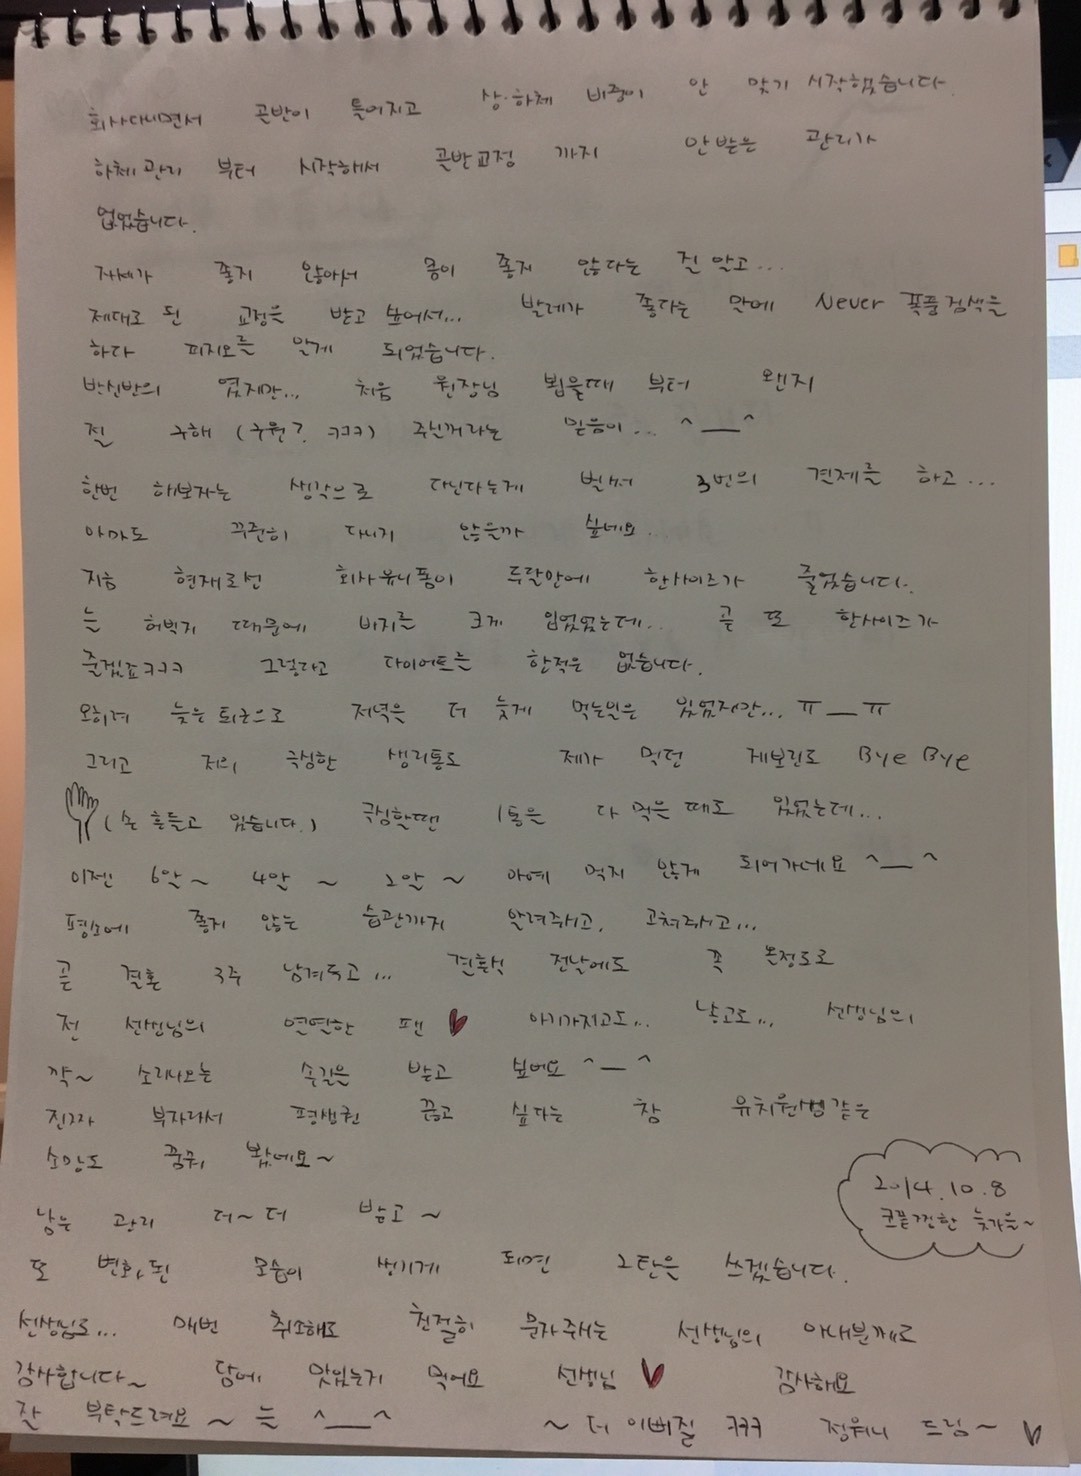 회사다니면서 골반이 틀어지고 상·하체 비중이 안 맞기 시작했습니다.
하체관리 부터 시작해서 골반교정 까지 안받은 관리가
없었습니다.
자세가 좋지 않아서 몸이 좋지 않다는 건 알고...
제대로 된 교정을 받고 싶어서... 발레가 좋다는 말에 Never 폭풍검색을
하다 피지오를 알게 되었습니다.
반신반의 였지만... 처음 원장님 뵘을때 부터 왠지
절 구해 (구원? ㅋㅋㅋ) 주실꺼라는 믿음이... ^__^
한번 해보자는 생각으로 다닌다는게 벌써 3번의 결제를 하고...
아마도 꾸준히 다니지 않을까 싶네요.
지금 현재로선 회사유니폼이 두달안에 한사이즈가 줄었습니다.
늘 허벅지 때문에 바지를 크게 입었었는데... 곧 또 한사이즈가
줄겠죠ㅋㅋㅋ 그렇다고 다이어트는 한적은 없습니다.
오히려 늦은퇴근으로 저녁은 더 늦게 먹는일은 있었지만... ㅠ__ㅠ
그리고 저의 극심한 생리통도 제가 먹던 게보린도 Bye Bye
(손 흔들고 있습니다.) 극심할땐 1통을 다 먹은때도 있었는데...
이젠 6알~ 4알 ~ 2알 ~ 아예 먹지 않게 되어가네요 ^__^
평소에 좋지 않는 습관까지 알려주시고, 고쳐주시고...
곧 결혼 3주 남겨두고... 결혼식 전날에도 꼭 올정도로
전 선생님의 열열한 팬 ♥ 아기가지고도... 낳고도... 선생님의
깍~ 소리나오는 손길을 받고 싶어요 ^__^
진짜 부자라서 평생권 끊고 싶다는 참 유치원생같은
소망도 꿈꿔 봤네요~
2014.10.8
늦가을~
남은 관리 더~더 받고~
또 변화된 모습이 생기게 되면 2탄은 쓰겠습니다.
선생님도... 매번 취소해도 친절히 문자주시는 선생님의 아내분께도
감사합니다~ 담에 맛있는거 먹어요 선생님 ♥ 감사해요
잘 부탁드려요 ~ 늘 ^__^ ~ 더 이뻐질 ㅋㅋㅋ 드림~ ♡